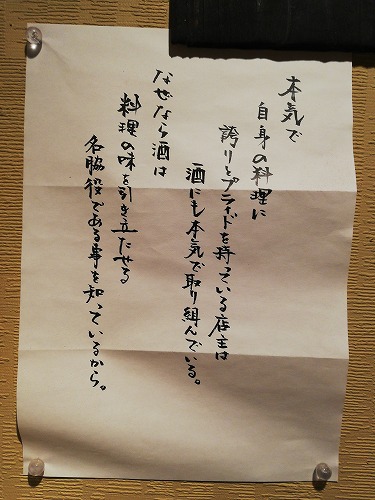 本気で
自身の料理に
誇りとプライドを持っている店主は
酒にも本気で取り組んでいる。
なぜなら酒は
料理の味を引き立たせる
名脇役である事を知っているから。